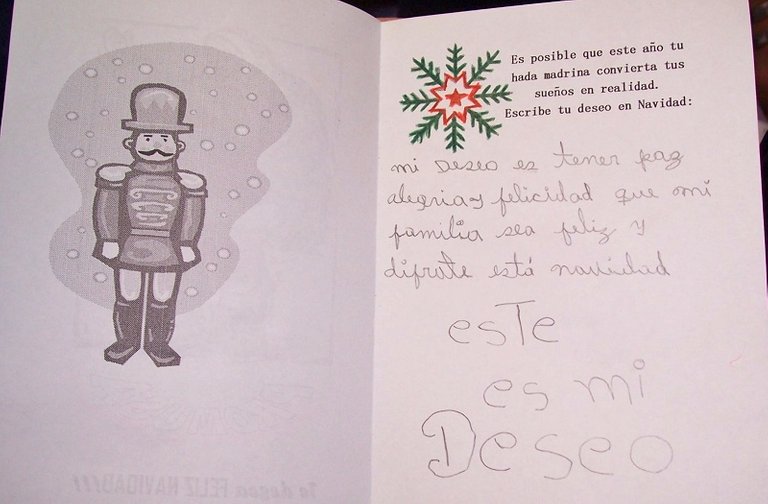 Es posible que este año tu
hada madrina convierta tus
sueños en realidad.
Escribe tu deseo en Navidad:
mi Deseo es tener paz
alegria y felicidad que mi
familia sea feliz y
difrute está navidad
esTe
es mi
Deseo
Te desea FELIZ NAVIDAD!!!